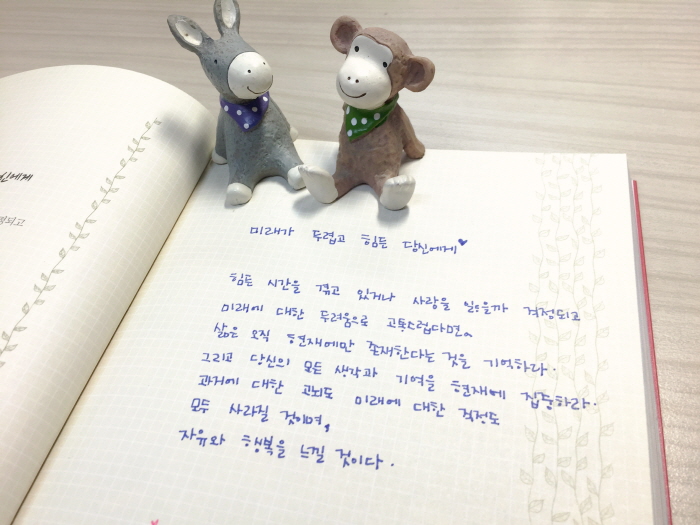 인에게
되고
미래가 두렵고 힘든 당신에게
힘든 시간을 겪고 있거나 사랑을 잃을까 걱정되고
미래에 대한 두려움으로 고통스럽다면.
삶은 오직 현재에만 존재한다는 것을 기억하라.
그리고 당신의 모든 생각과 기억을 현재에 집중하라.
과거에 대한 고뇌도 미래에 대한 걱정도
모두 사라질 것이며,
자유와 행복을 느낄 것이다.